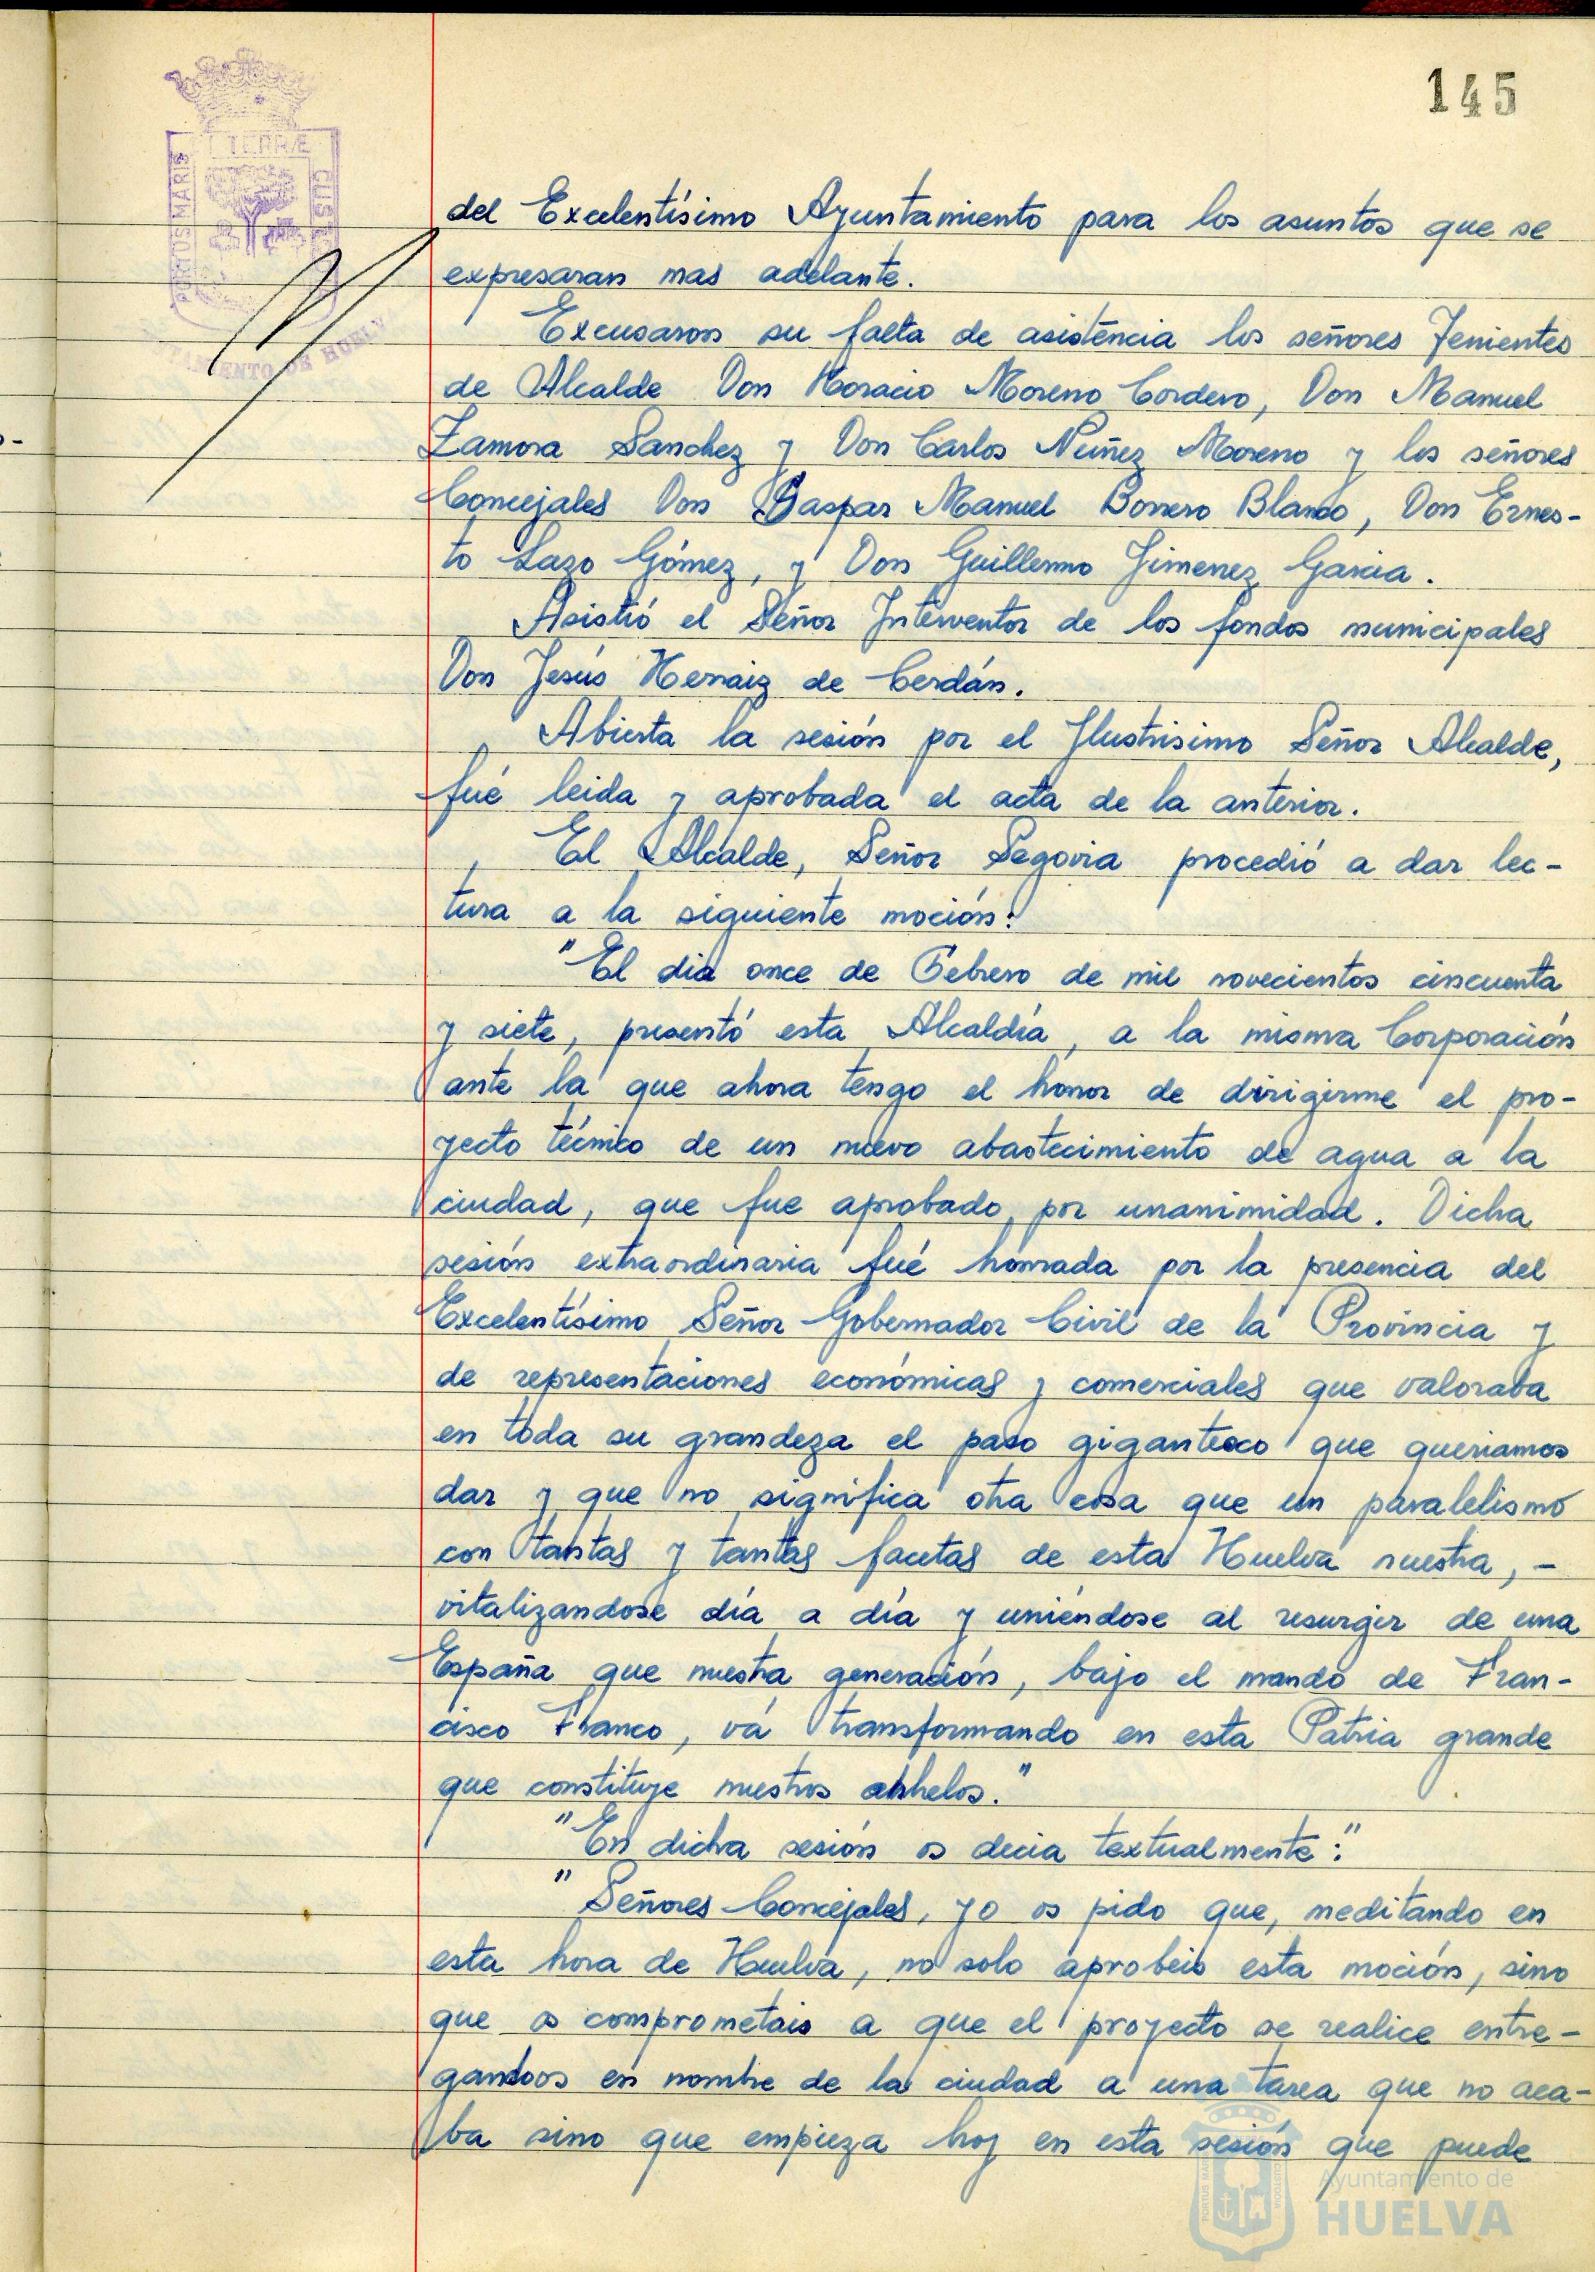 145
TERRÆ
PORTUS MARIS
CUSTODIA
AYUNTAMIENTO DE HUELVA
del Excelentísimo Ayuntamiento para los asuntos que se
expresaran mas adelante.
Excusaron su falta de asistencia los señores Tenientes
de Alcalde Don Horacio Moreno Cordero, Don Manuel
Zamora Sanchez y Don Carlos Nuñez Moreno y los señores
Concejales Don Gaspar Manuel Borrero Blanco, Don Ernes-
to Lazo Gómez, y Don Guillermo Jimenez Garcia.
Asistió el Señor Interventor de los fondos municipales
Don Jesús Hernaiz de Cerdán.
Abierta la sesión por el Ilustrisimo Señor Alcalde,
fué leida y aprobada el acta de la anterior.
El Alcalde, Señor Segovia procedió a dar lec-
tura a la siguiente moción:
"El dia once de Febrero de mil novecientos cincuenta
y siete, presentó esta Alcaldía, a la misma Corporación
ante la que ahora tengo el honor de dirigirme el pro-
yecto técnico de un nuevo abastecimiento de agua a la
ciudad, que fue aprobado por unanimidad. Dicha
sesión extraordinaria fué honrada por la presencia del
Excelentísimo Señor Gobernador Civil de la Provincia y
de representaciones económicas y comerciales que valoraba
en toda su grandeza el paso gigantesco que queriamos
dar y que no significa otra cosa que un paralelismo
con tantas y tantas facetas de esta Huelva nuestra, -
vitalizandose día a día y uniéndose al resurgir de una
España que nuestra generación, bajo el mando de Fran-
cisco Franco, vá transformando en esta Patria grande
que constituye nuestros anhelos."
"En dicha sesión os decia textualmente:"
"Señores Concejales, yo os pido que, meditando en
esta hora de Huelva, no solo aprobeis esta moción, sino
que os comprometais a que el proyecto se realice entre-
gandoos en nombre de la ciudad a una tarea que no aca-
ba sino que empieza hoy en esta sesión que puede
Ayuntamiento de
HUELVA